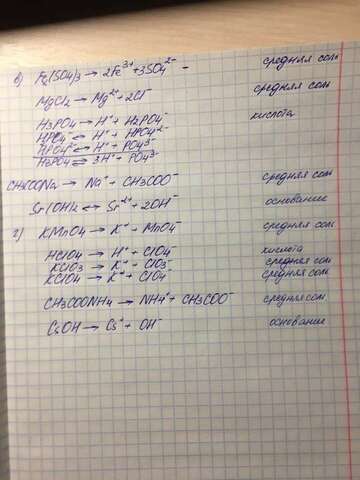 в) Fe₂(SO₄)₃ → 2Fe³⁺ + 3SO₄²⁻ – средняя соль
MgCl₂ → Mg²⁺ + 2Cl⁻ средняя соль
H₃PO₄ → H⁺ + H₂PO₄⁻ кислота
H₂PO₄⁻ ⇄ H⁺ + HPO₄²⁻
HPO₄²⁻ ⇄ H⁺ + PO₄³⁻
H₃PO₄ ⇄ 3H⁺ + PO₄³⁻
CH₃COONa → Na⁺ + CH₃COO⁻ средняя соль
Sr(OH)₂ ↔ Sr²⁺ + 2OH⁻ основание
г) KMnO₄ → K⁺ + MnO₄⁻ средняя соль
HClO₄ → H⁺ + ClO₄⁻ кислота
KClO₃ → K⁺ + ClO₃⁻ средняя соль
KClO₄ → K⁺ + ClO₄⁻ средняя соль
CH₃COONH₄ → NH₄⁺ + CH₃COO⁻ средняя соль
CsOH → Cs⁺ + OH⁻ основание